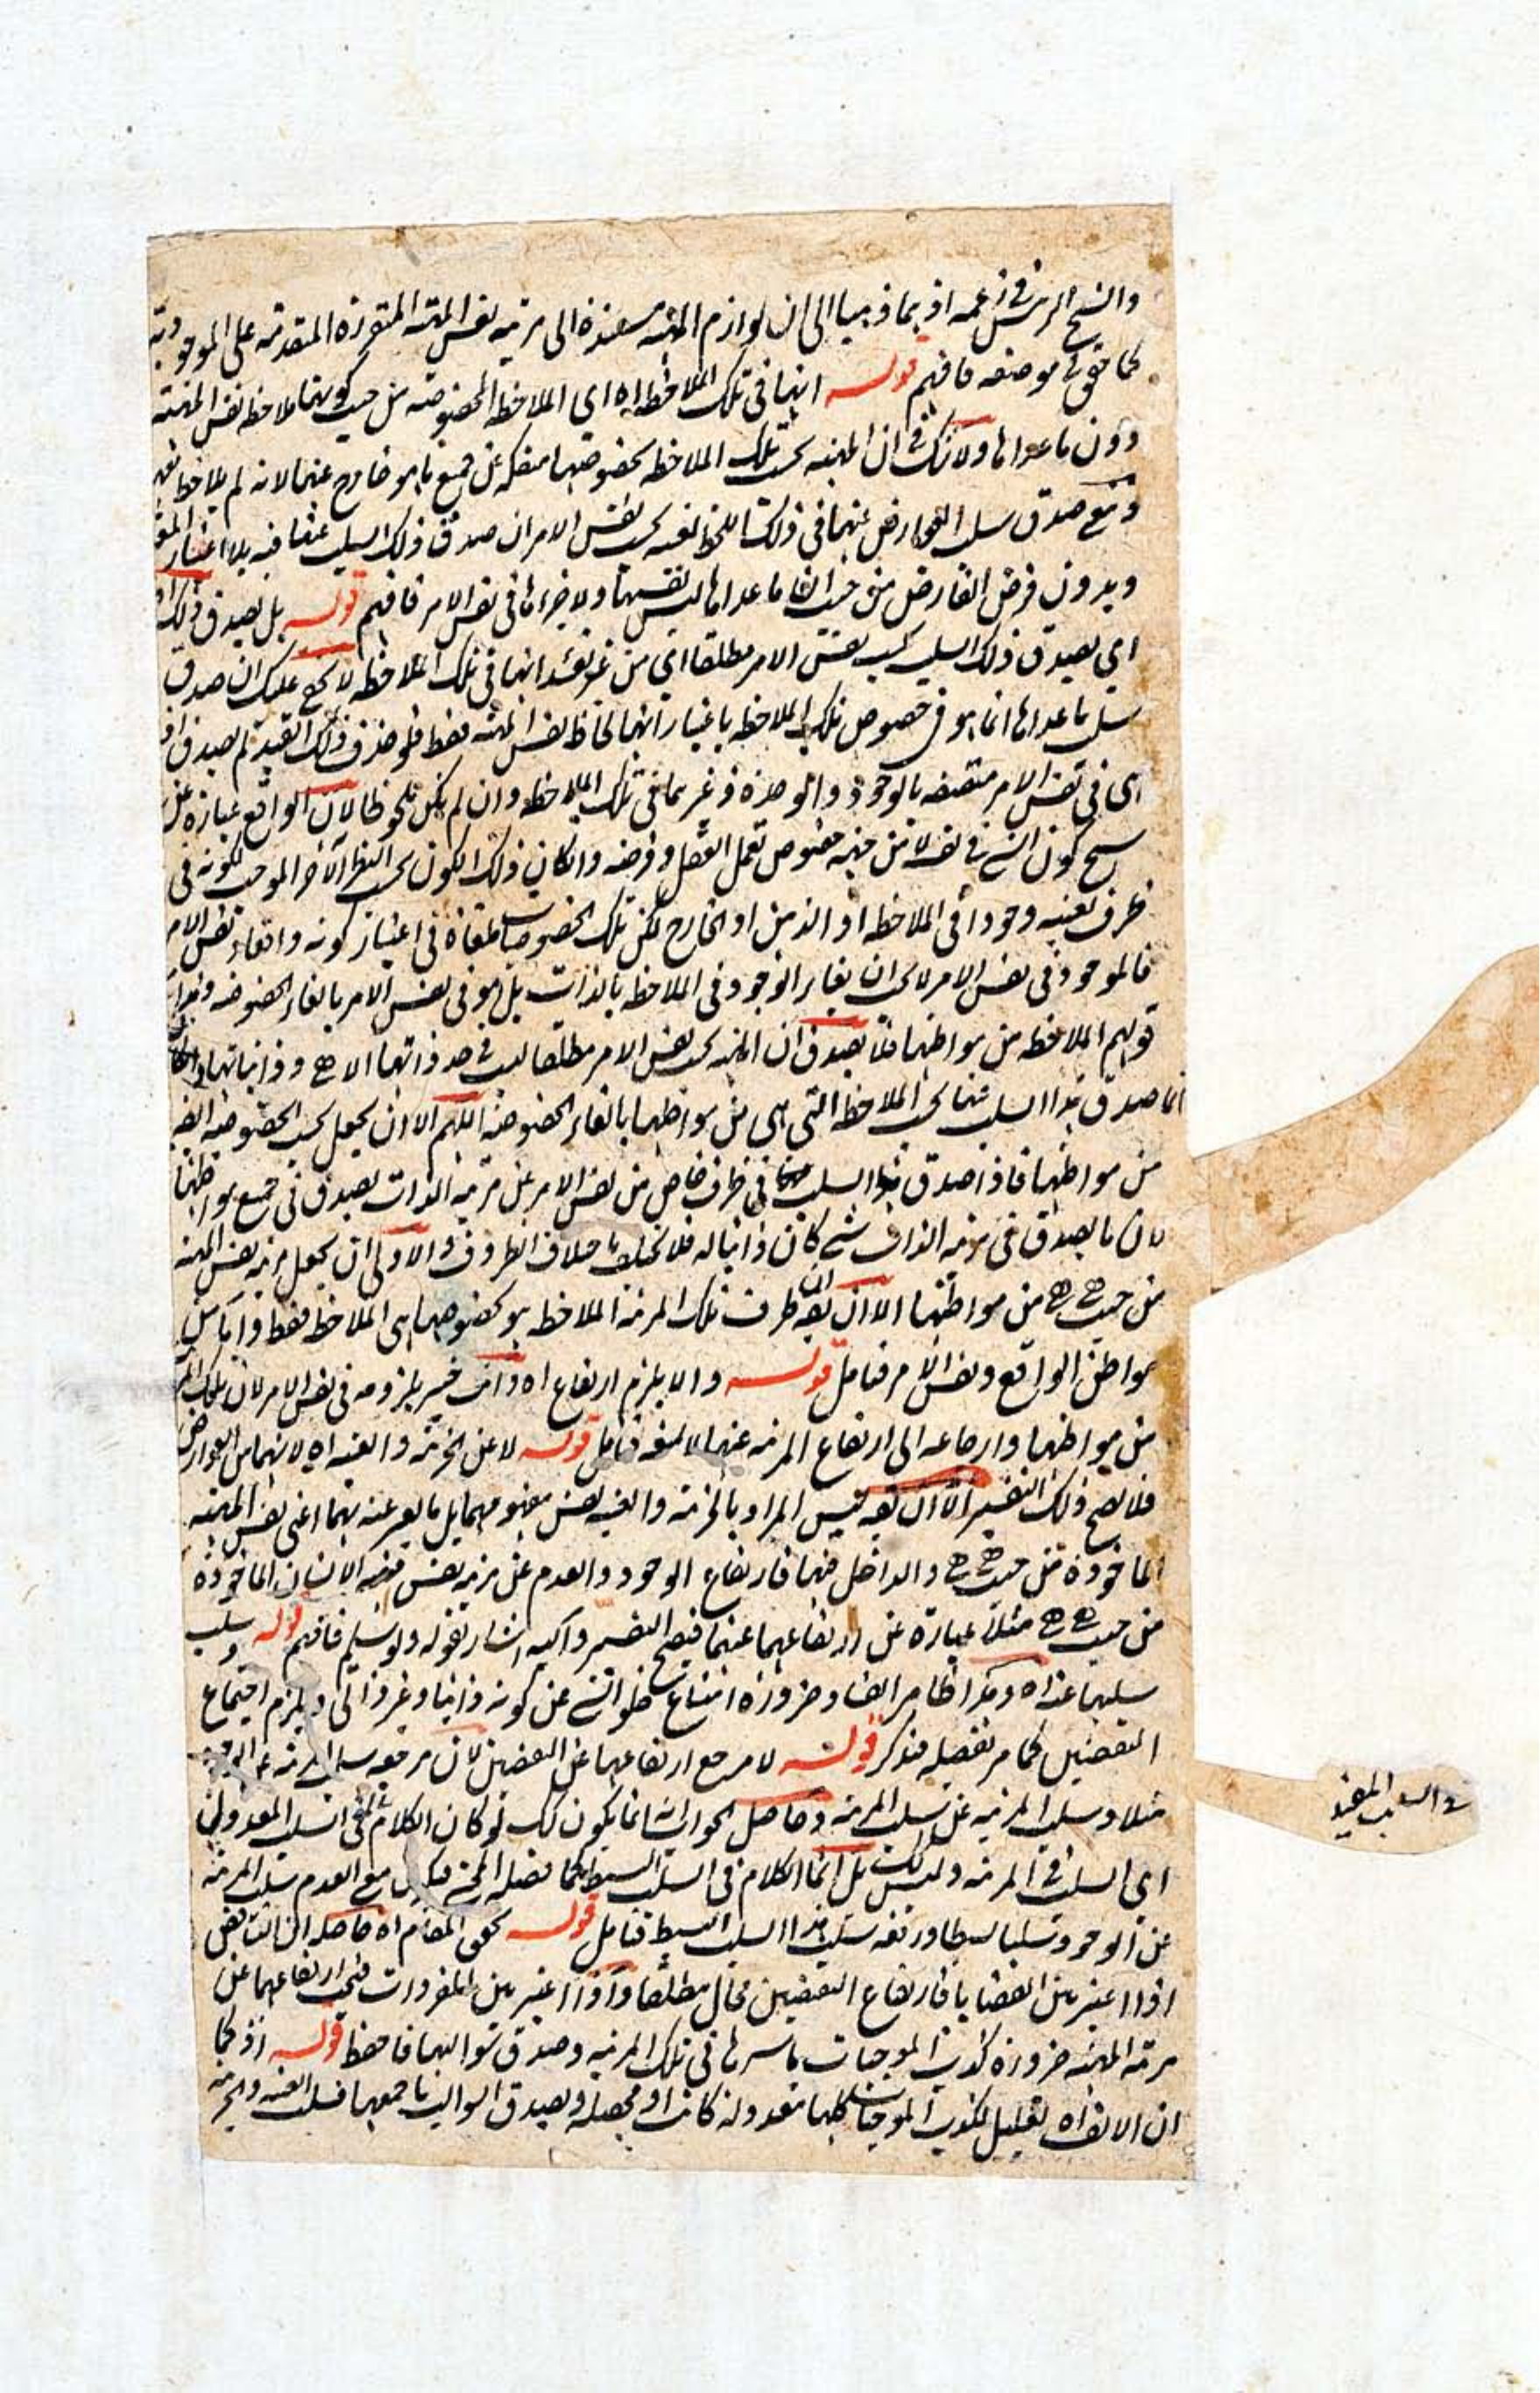 والشيخ الرئيس في زعمه اذ هما ذهبا الى ان لوازم المهية مستندة الى مرتبة نفس المهية المتقررة المتقدمة على الموجودية
كما حقق في موضعه فافهم قوله انها في تلك الملاحظة اه اي الملاحظة المخصوصة من حيث كونها ملاحظة نفس المهية
دون ما عداها ولا شك في ان المهية بحسب تلك الملاحظة بخصوصها منفكة عن جميع ما هو خارج عنها لانه لم يلاحظ معها
ومع صدق سلب العوارض عنها في ذلك اللحاظ نفسه بحسب نفس الامر ان صدق ذلك السلب عنها فيه بلا اعتبار
وبدون فرض الفارض من حيث ان ما عداها ليس نفسها ولا جزءها في نفس الامر فافهم قوله بل يصدق ذلك اه
اي يصدق ذلك السلب بحسب نفس الامر مطلقا اي من غير تقييد انها في تلك الملاحظة لا يخفى عليك ان صدق
سلب ما عداها انما هو في خصوص تلك الملاحظة باعتبار انها لحاظ نفس المهية فقط فلو حذف ذلك القيد لم يصدق
اي في نفس الامر متصفة بالوجود والوحدة وغيرهما في تلك الملاحظة وان لم يكن ملحوظا لان الواقع عبارة عن
كون الشيء في نفسه لا من جهة خصوص تعمل العقل وفرضه وان كان ذلك الكون بحسب النظر الآخر الموجب لكونه في
ظرف بعينه وجودا في الملاحظة او الذهن او الخارج لكن تلك الخصوصيات ملغاة في اعتبار كونه واقعا ونفس الامر
فالموجود في نفس الامر لا يجب ان يغاير الوجود في الملاحظة بالذات بل هو في نفس الامر بالغاء الخصوصية وهذا
قولهم الملاحظة من مواطنها فلا يصدق ان المهية بحسب نفس الامر مطلقا ليست في حد ذاتها الا هي وذاتياتها
انما صدق هذا السلب عنها بحسب الملاحظة التي هي من مواطنها بالغاء الخصوصية اللهم الا ان يجعل بحسب الخصوصية ايضا
من مواطنها فاذا صدق هذا السلب في ظرف خاص من نفس الامر عن مرتبة الذات يصدق في جميع مواطنها
لان ما يصدق في مرتبة الذات شيء كان ذاتيا له فلا يختلف باختلاف الظروف والاولى ان يجعل مرتبة نفس المهية
من حيث هي هي من مواطنها الا ان يقال ان ظرف تلك المرتبة الملاحظة هو بخصوصها هي الملاحظة فقط
مواطن الواقع ونفس الامر فتأمل قوله والا يلزم ارتفاع اه وانت خبير بلزومه في نفس الامر لان تلك
من مواطنها وارجاعه الى ارتفاع المرتبة عنها لا ينفعه فتأمل قوله لا عن الجزئية والعينية اه لانهما من العوارض
فلا يصح ذلك التفسير الا ان يقال ليس المراد بالجزئية والعينية نفس مفهومهما بل ما يعبر عنه بهما اعني نفس المهية
الماخوذة من حيث هي هي والداخل فيها فارتفاع الوجود والعدم عن مرتبة نفس مهية الانسان الماخوذة
من حيث هي هي مثلا عبارة عن ارتفاعهما عنها فيصح التفسير واليه اشار بقوله ولو سلم فافهم قوله وسلب
سلبهما عنه اه وهذا ظاهر الفساد ضرورة امتناع خلو الشيء عن كونه ذاتيا وغير ذاتي ويلزم اجتماع
النقيضين كما مر تفصيله فتذكر قوله لا مرجع ارتفاعهما عن النقيضين لان مرجعه سلب المرتبة عن الوجود
مثلا وسلب المرتبة عن سلب المرتبة وحاصل الجواب انه انما يكون كك لو كان الكلام في السلب المعدولي
اي السلب في المرتبة وليس كك بل انما الكلام في السلب البسيط كما فصله المحشي مع العدم سلب المرتبة
عن الوجود سلبا بسيطا ورفعه سلب هذا السلب البسيط فتأمل قوله تحقق المقام اه حاصله ان التناقض
اذا اعتبر بين القضايا فارتفاع النقيضين محال مطلقا واذا اعتبر بين المفردات فيجب ارتفاعهما عن
مرتبة المهية ضرورة كذب الموجبات باسرها في تلك المرتبة وصدق سوالبها فاحفظ قوله اذ كما
ان الانسان اه تعليل لكذب الموجبات كلها معدولة كانت او محصلة وصدق السوالب باجمعها فسلب العينية والجزئية